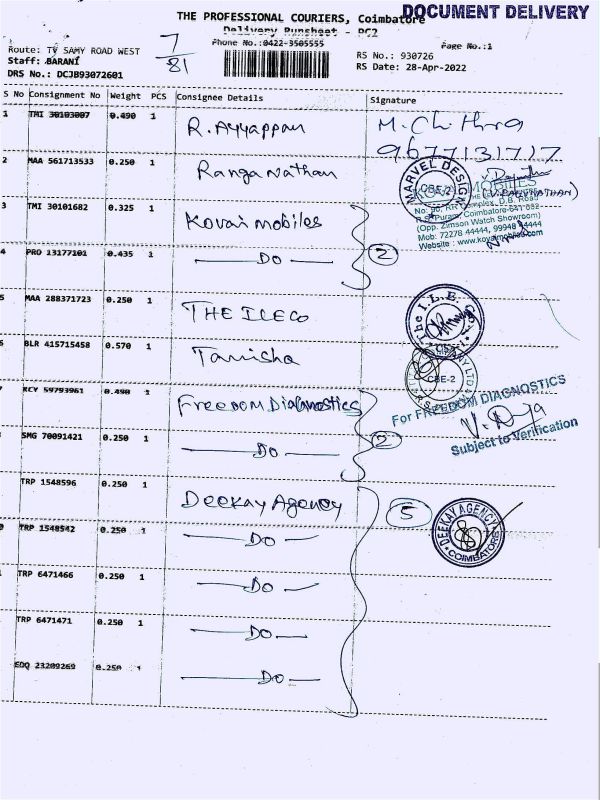 THE PROFESSIONAL COURIERS, Coimbatore
DOCUMENT DELIVERY
Delivery Runsheet - PC2
Phone No.:0422-3505555
Page No.:1
7/81
Route: TV SAMY ROAD WEST
Staff: BARANI
DRS No.: DCJB93072601
RS No.: 930726
RS Date: 28-Apr-2022
S No Consignment No Weight PCS Consignee Details Signature
1 TMI 30103007 0.490 1 R. Ayyappan M. Chithra
9677131717
2 MAA 561713533 0.250 1 Ranganathan
MARVEL DESIGN
CBE-2
MOBILES
D.B. Road
R.S.Puram, Coimbatore-641 002
(Opp. Zimson Watch Showroom)
Mob: 72278 44444, 99948 44444
Website : www.kovaimobiles.com
3 TMI 30101682 0.325 1 Kovai mobiles
4 PRO 13177101 0.435 1 Do 2
5 MAA 288371723 0.250 1 THE ILECO
The I.L.E.
6 BLR 415715458 0.570 1 Tanisha
CBE-2
KCY 59793961 0.490 1 Freedom Diagnostics
For FREEDOM DIAGNOSTICS
V. Divya
Subject to Verification
SMG 70091421 0.250 1 Do 2
TRP 1548596 0.250 1 Deekay Agency 5
DEEKAY AGENCY
COIMBATORE
TRP 1548542 0.250 1 Do
TRP 6471466 0.250 1 Do
TRP 6471471 0.250 1 Do
EDQ 23209269 0.250 1 Do